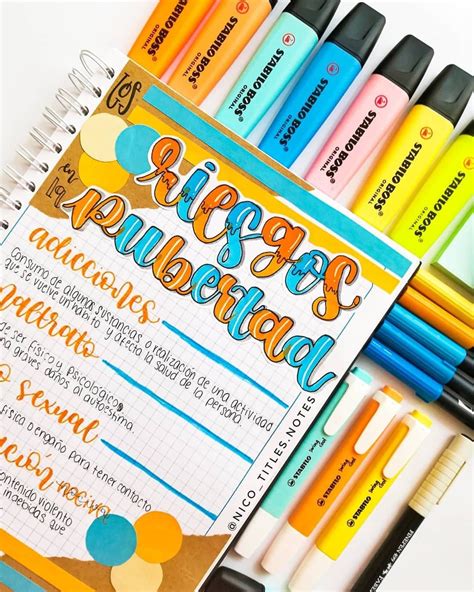 los
riesgos
en la
pubertad
adicciones
Consumo de algunas sustancias, o realización de una actividad
que se vuelve un hábito y afecta la salud de la persona.
maltrato
de ser físico y psicológico
na graves daños al autoestima.
o sexual
física o engaño para tener contacto
ción nociva
contenido violento
inadebidas que
@NICO_TITLES.NOTES
STABILO BOSS
ORIGINAL
STABILO BOSS
ORIGINAL
STABILO BOSS
ORIGINAL
STABILO BOSS
ORIGINAL
STABILO BOSS
ORIGINAL
STABILO BOSS
ORIGINAL
STABILO BOSS
ORIGINAL
STABILO
swing cool
STABILO
swing cool
STABILO
swing cool